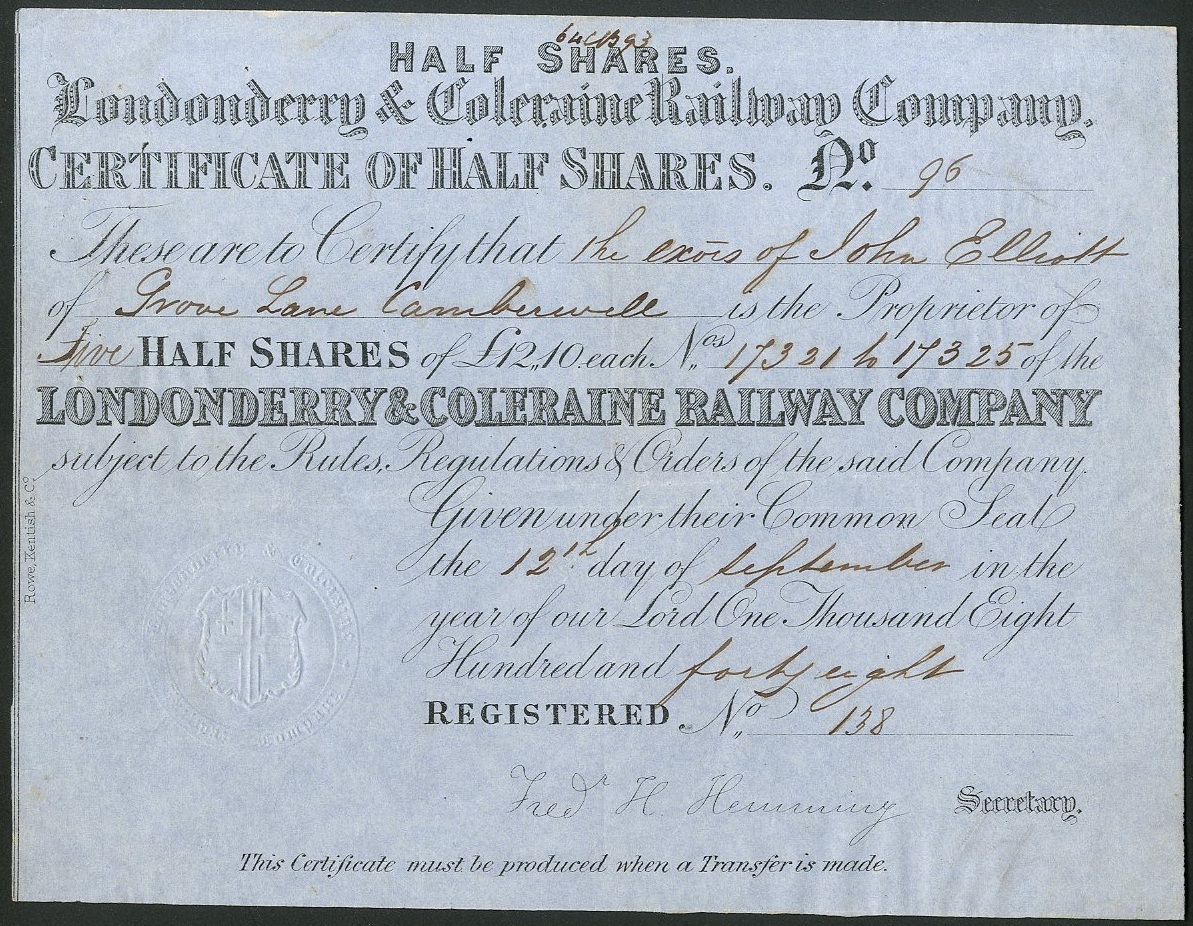 HALF SHARES.
Londonderry & Coleraine Railway Company.
CERTIFICATE OF HALF SHARES. No. 96
These are to Certify that the exōrs of John Elliott
of Grove Lane Camberwell is the Proprietor of
Five HALF SHARES of £12,,10 each Nos. 17321 to 17325 of the
LONDONDERRY & COLERAINE RAILWAY COMPANY
subject to the Rules, Regulations & Orders of the said Company.
Given under their Common Seal
the 12th day of September in the
year of our Lord One Thousand Eight
Hundred and forty eight
REGISTERED No. 138
Fredk H. Hemming Secretary.
This Certificate must be produced when a Transfer is made.
Rowe, Kentish & Co.